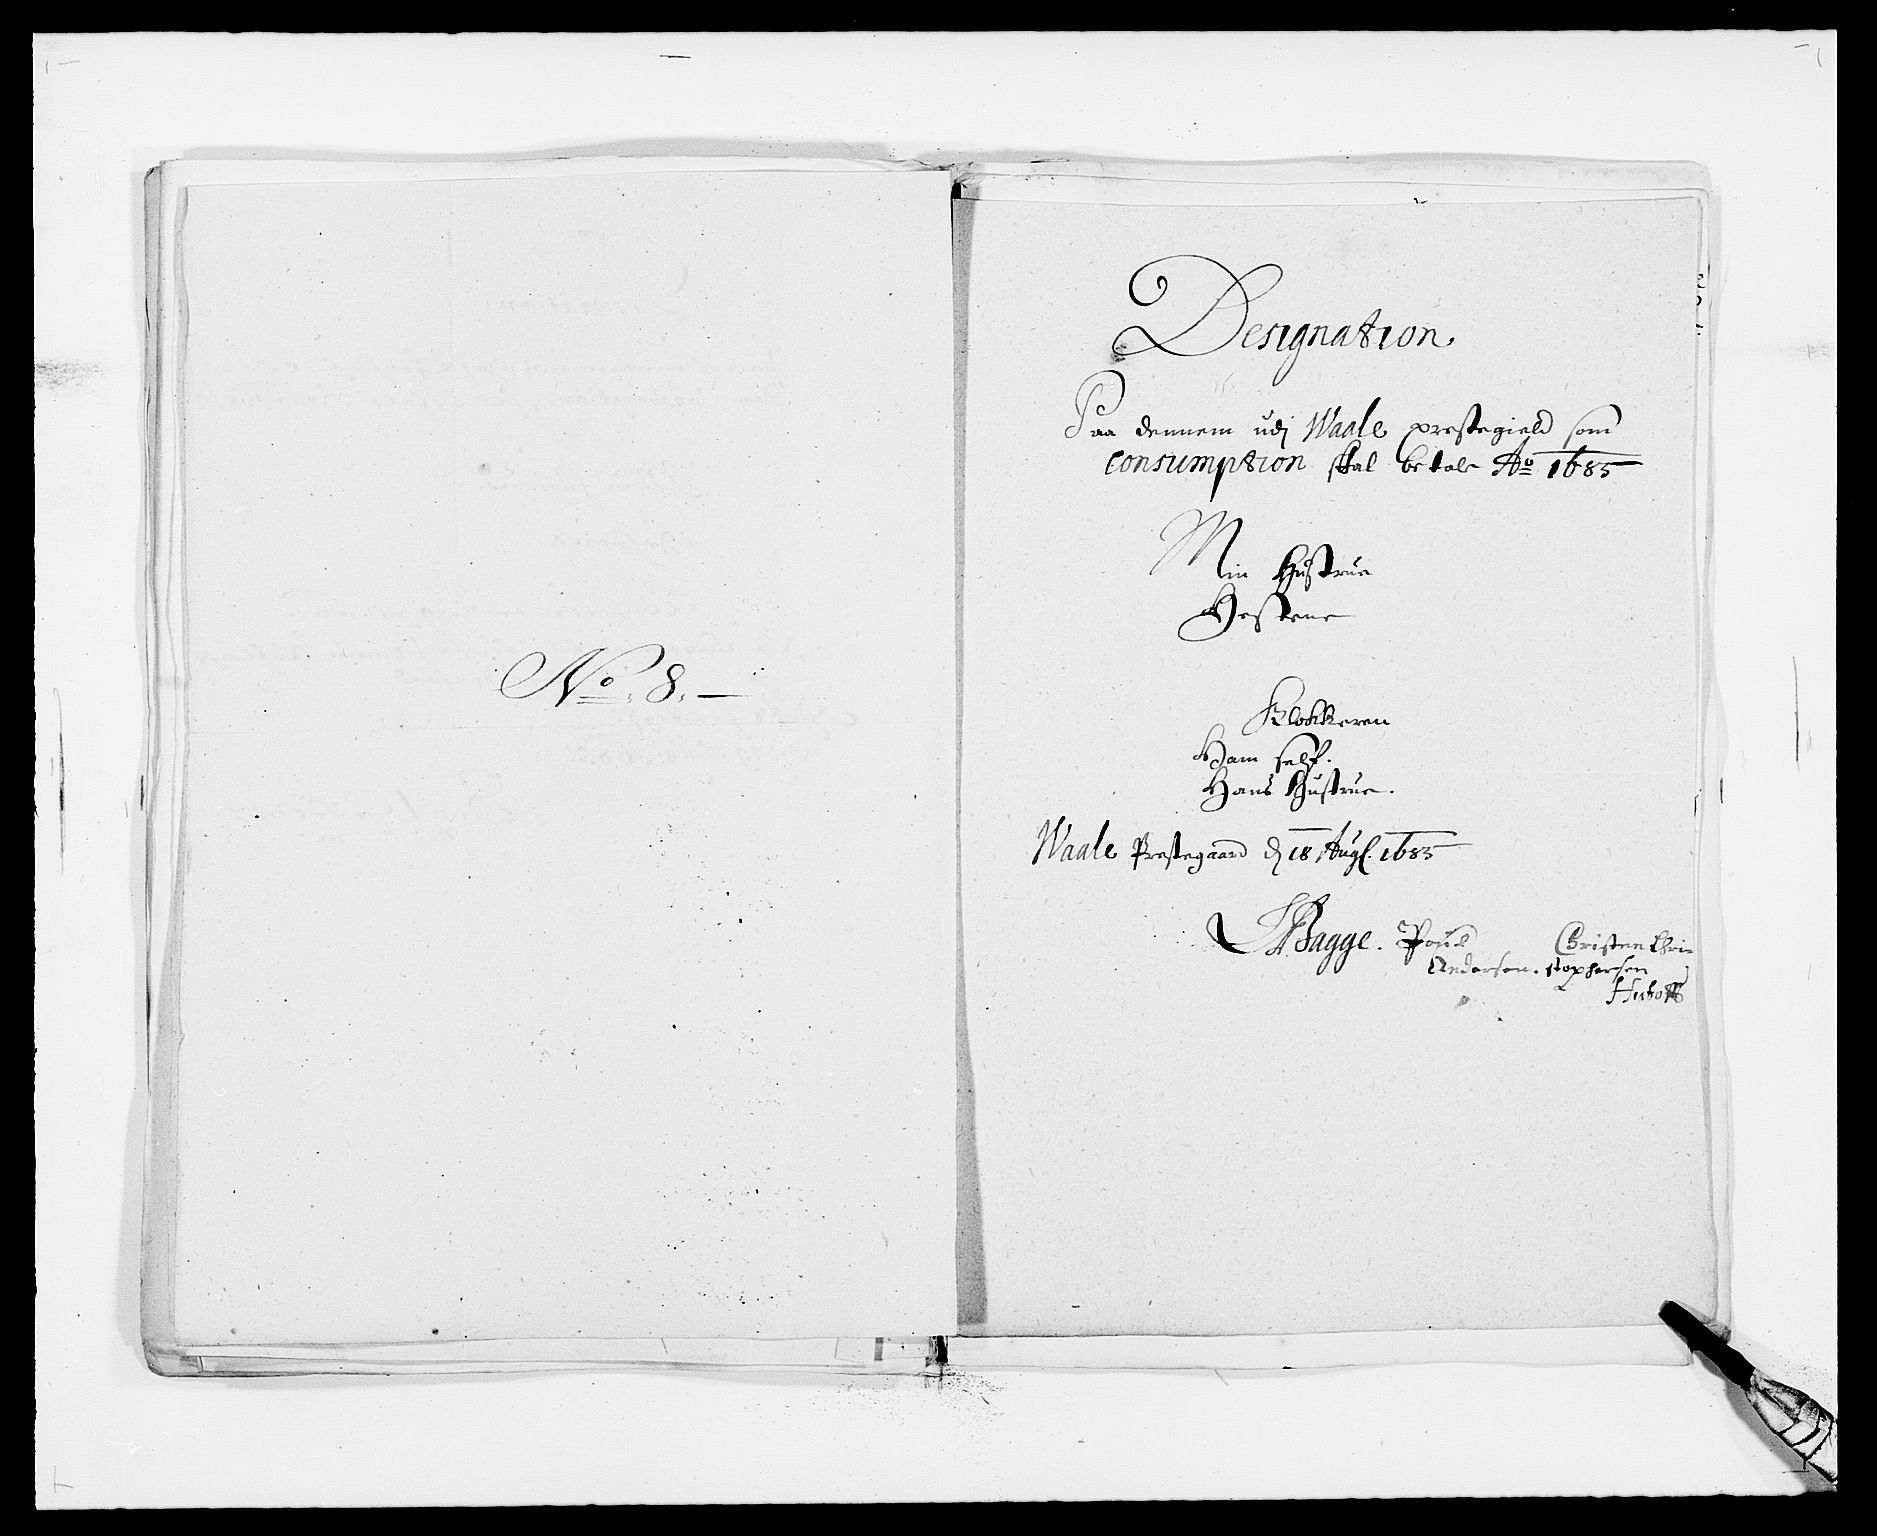 No. 8. —
Designation
Paa dennem udj Waale prestegield som
Consumption skal betale Ao 1685
Min Hustrue
Hestene
Klokkeren
Ham self.
Hans Hustrue.
Waale Prestegaard d 18 Augs. 1685
Bagge. Poull Christen Chri-
Andersen. stophersen